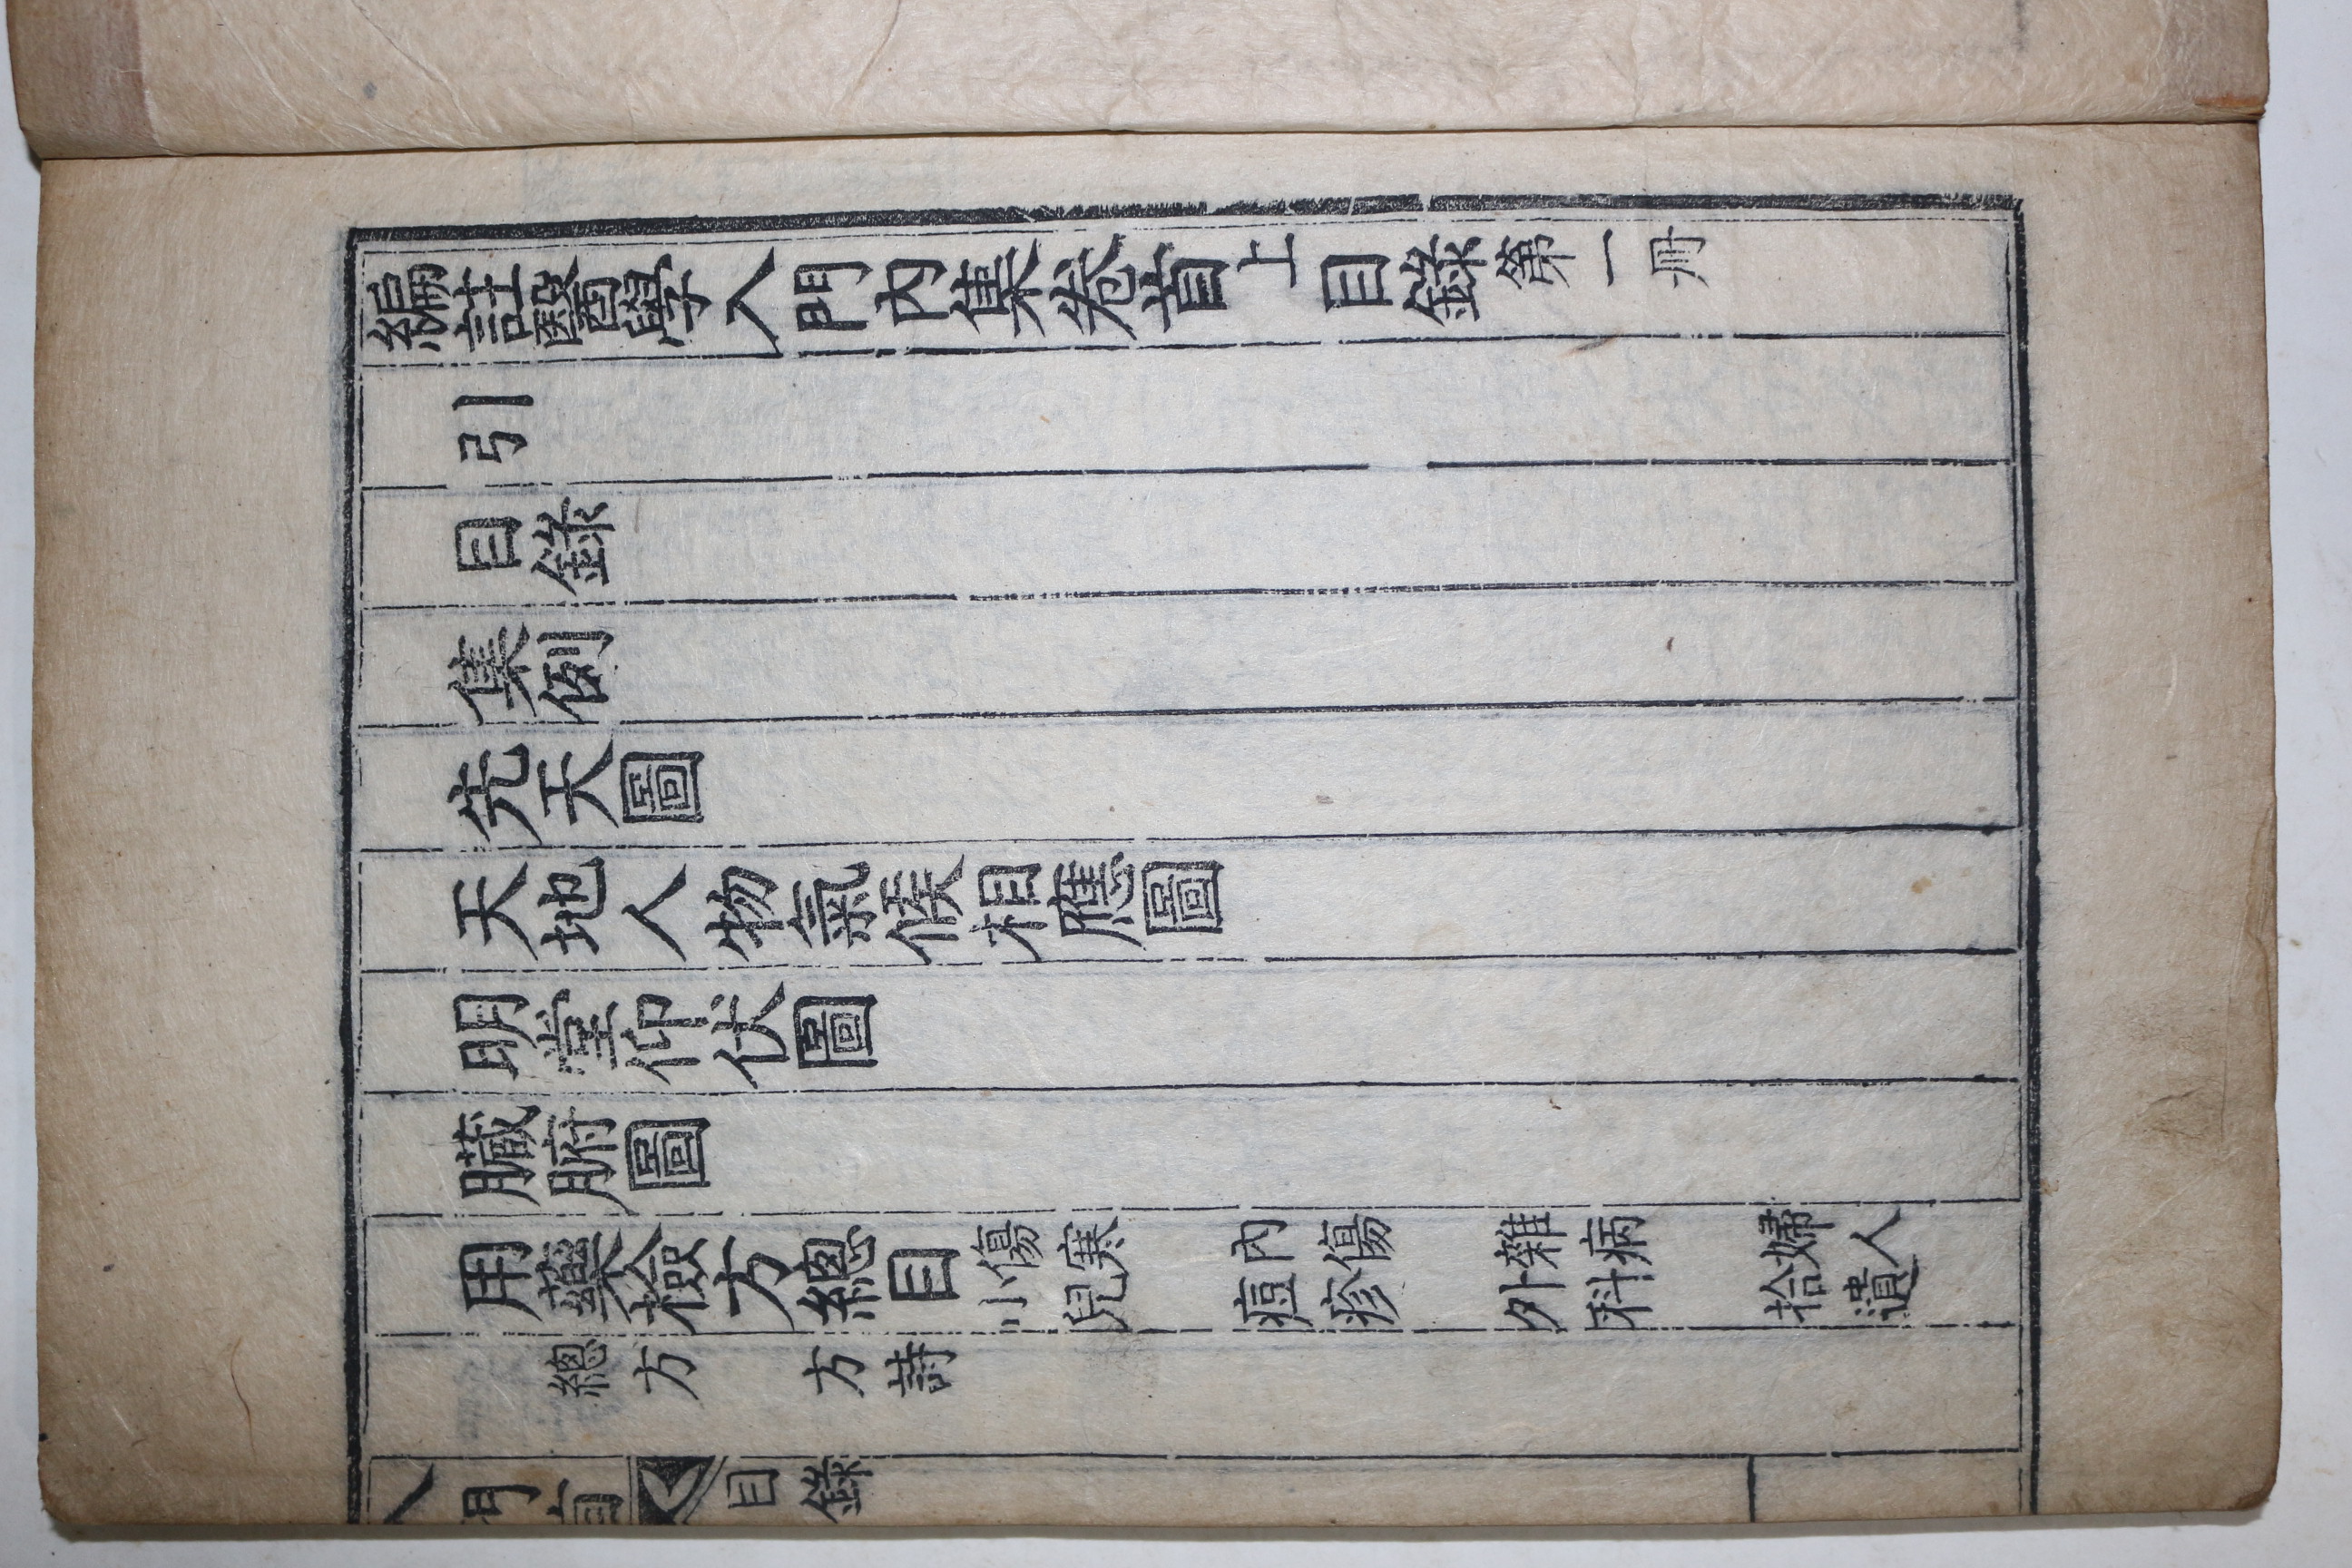 編註醫學入門內集卷首上目錄第一冊
引
目錄
集例
先天圖
天地人物氣候相應圖
明堂仰伏圖
臟腑圖
用藥檢方總目
傷寒　內傷　雜病　婦人
小兒　痘疹　外科　拾遺
總方　方詩
入門首　目錄